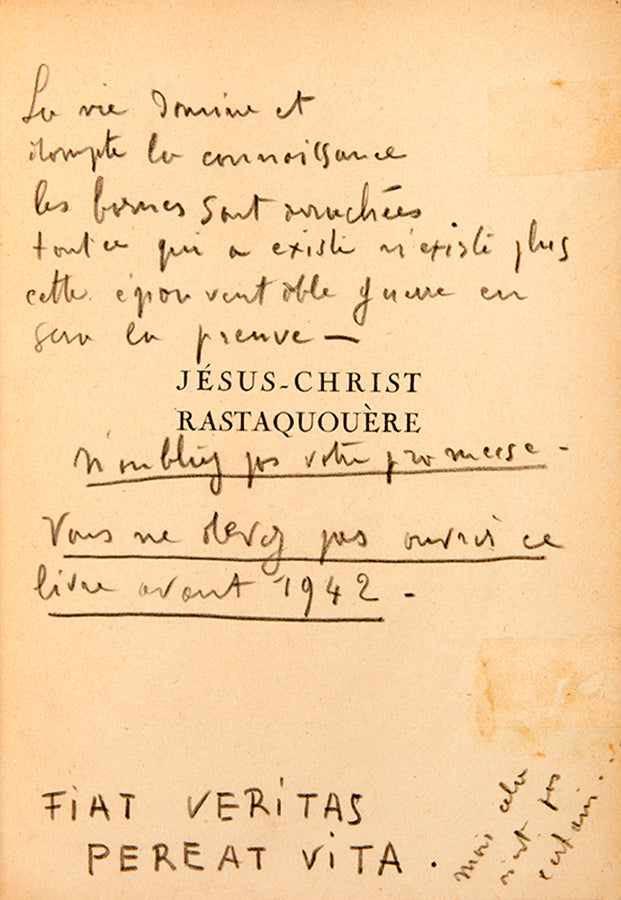 La vie domine et
dompte la connaissance
les bornes sont arrachées
tout ce qui a existé n'existe plus
cette épouventable guerre en
sera la preuve —
JÉSUS-CHRIST
RASTAQUOUÈRE
N'oubliez pas votre promesse -
Vous ne devez pas ouvrir ce
livre avant 1942 -
FIAT VERITAS
PEREAT VITA .
mais cela
n'est pas
certain...